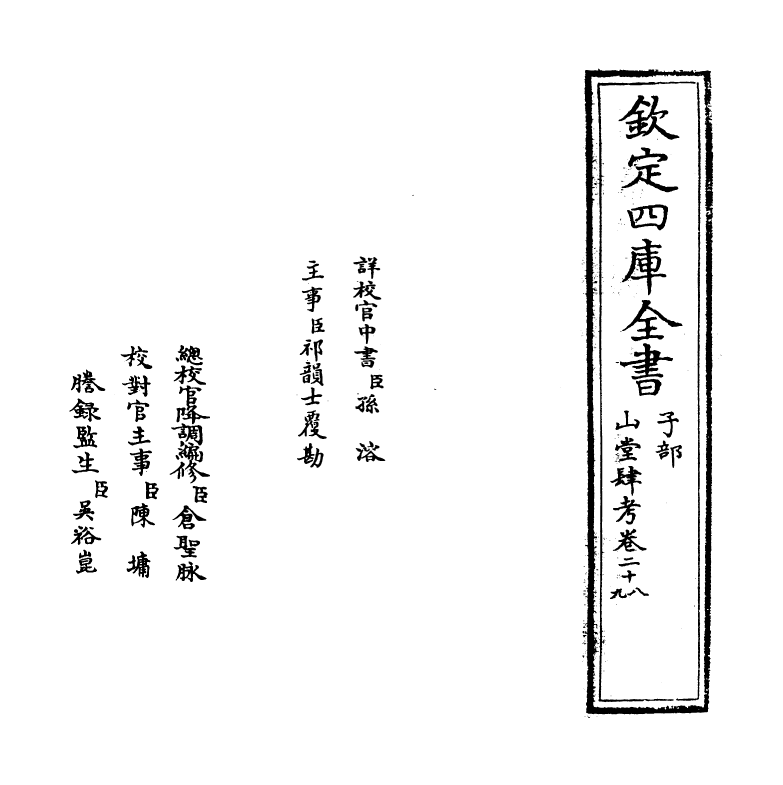 欽定四庫全書
子部
山堂肆考卷二十八九
詳校官中書臣孫溶
主事臣祁韻士覆勘
總校官降調編修臣倉聖脉
校對官主事臣陳墉
謄錄監生臣吳裕崑